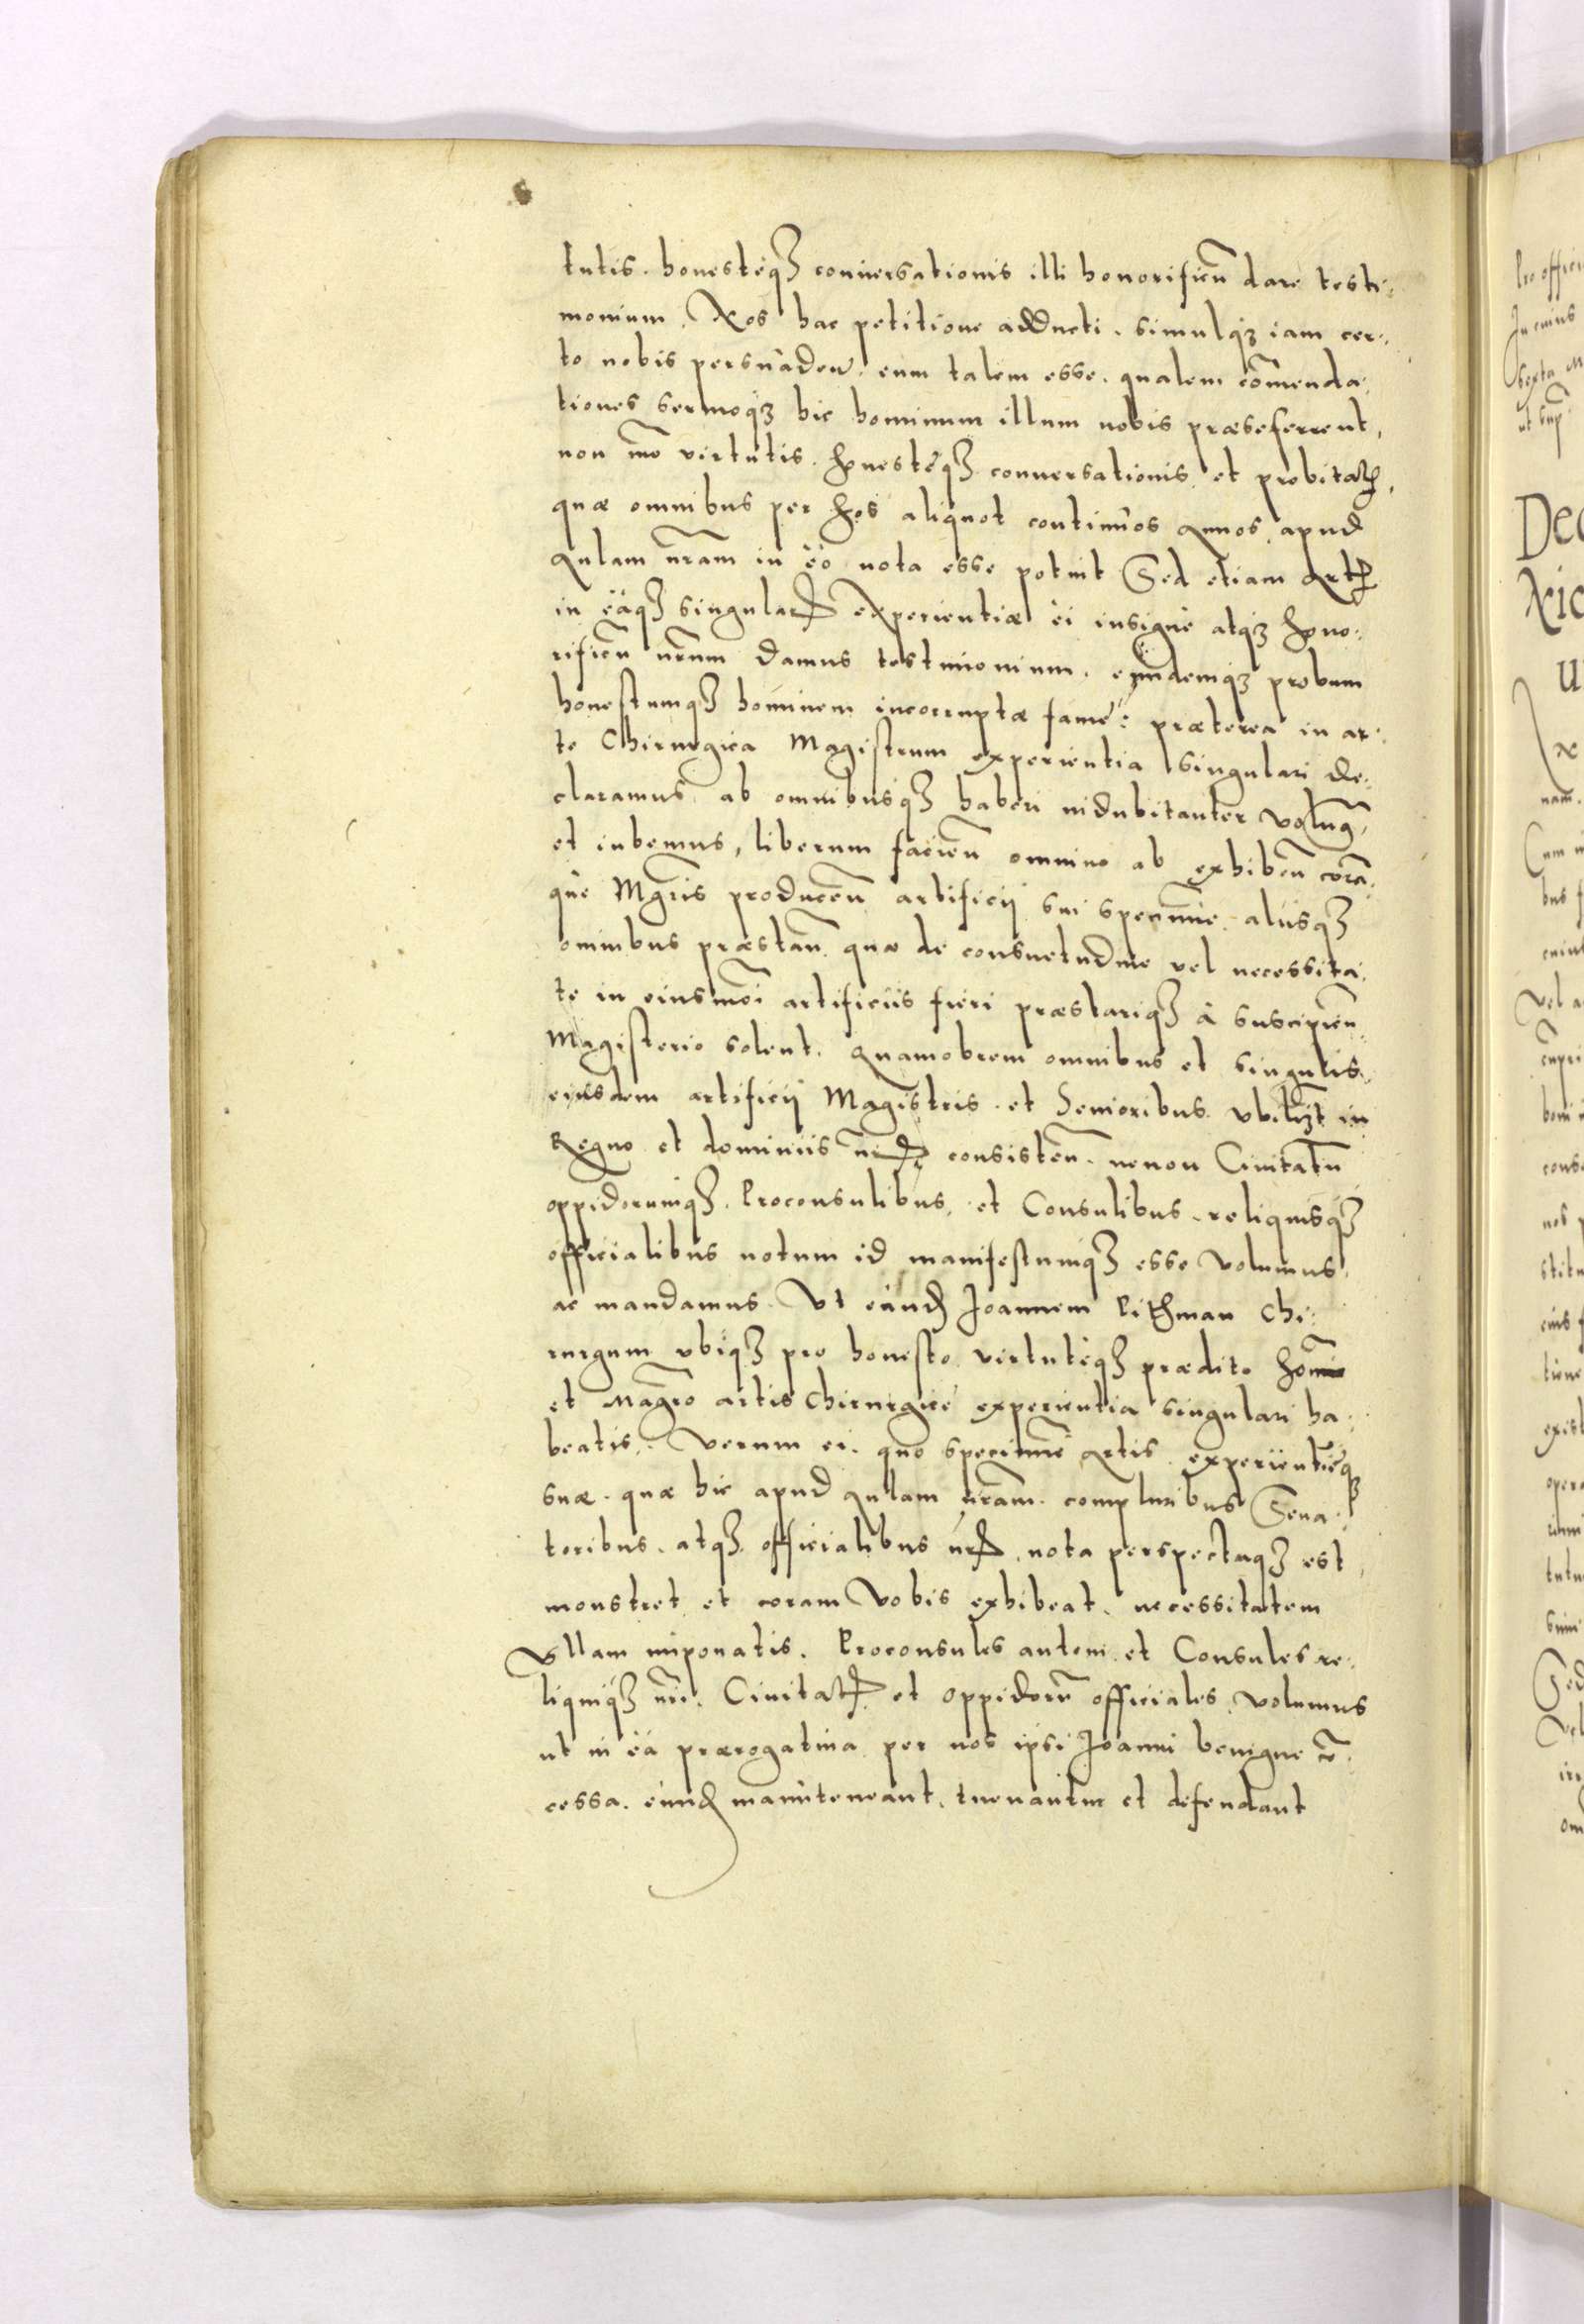 tutis. honestęq3 conuersationis illi honorificũ dare testi-
monium. Nos hac petitione adducti. simulq3 iam cer-
to nobis persuaden̄. eum talem esse. qualem com̄enda-
tiones sermoq3 hic hominum illum nobis præseferrent,
non mō virtutis. honestęq3 conuersationis et probitatis,
quæ omnibus per hos aliquot continuos annos apud
Aulam nr̄am in eo nota esse potuit Sed etiam artis
in eaq3 singularis experientiæ ei insigne atq3 hono-
rificũ nr̄um damus testimonium. eundemq3 probum
honestumq3 hominem incorruptæ famę: præterea in ar-
te Chirurgica Magistrum experientia singulari de-
claramus ab omnibusq3 haberi indubitanter volumus
et iubemus, liberum facien̄ omnino ab exhiben̄ corā
que Mgr̄is producen̄ artificij sui specimine. alijsq3
omnibus præstan̄. quæ de consuetudine vel necessita-
te in eiusmōi artificiis fieri præstariq3 à suscipien̄
Magisterio solent. Quamobrem omnibus et singulis
eiusdem artificij Magistris et Senioribus vbilt in
Regno et dominiis nr̄is consisten̄. necnon Ciuitatũ
oppidorumq3 Proconsulibus, et Consulibus reliquisq3
officialibus notum id manifestumq3 esse volumus
ac mandamus. Vt eund Joannem Pithman Chi-
rurgum vbiq3 pro honesto virtuteq3 prædito homine
et Magr̄o artis Chirurgicę experientia singulari ha-
beatis. Verum ei. quo specimē artis experientięq3
suæ. quæ hic apud Aulam nr̄am. compluribus Sena-
toribus. atq3 officialibus nr̄is nota perspectaq3 est,
monstret et coram Vobis exhibeat. necessitatem
Vllam imponatis. Proconsules autem et Consules re-
liquiq3 nr̄i. Ciuitatis et oppidorũ officiales volumus
ut in ea prærogatiua per nos ipsi Joanni benigne cō-
cessa. eund manuteneant. tueantur et defendant